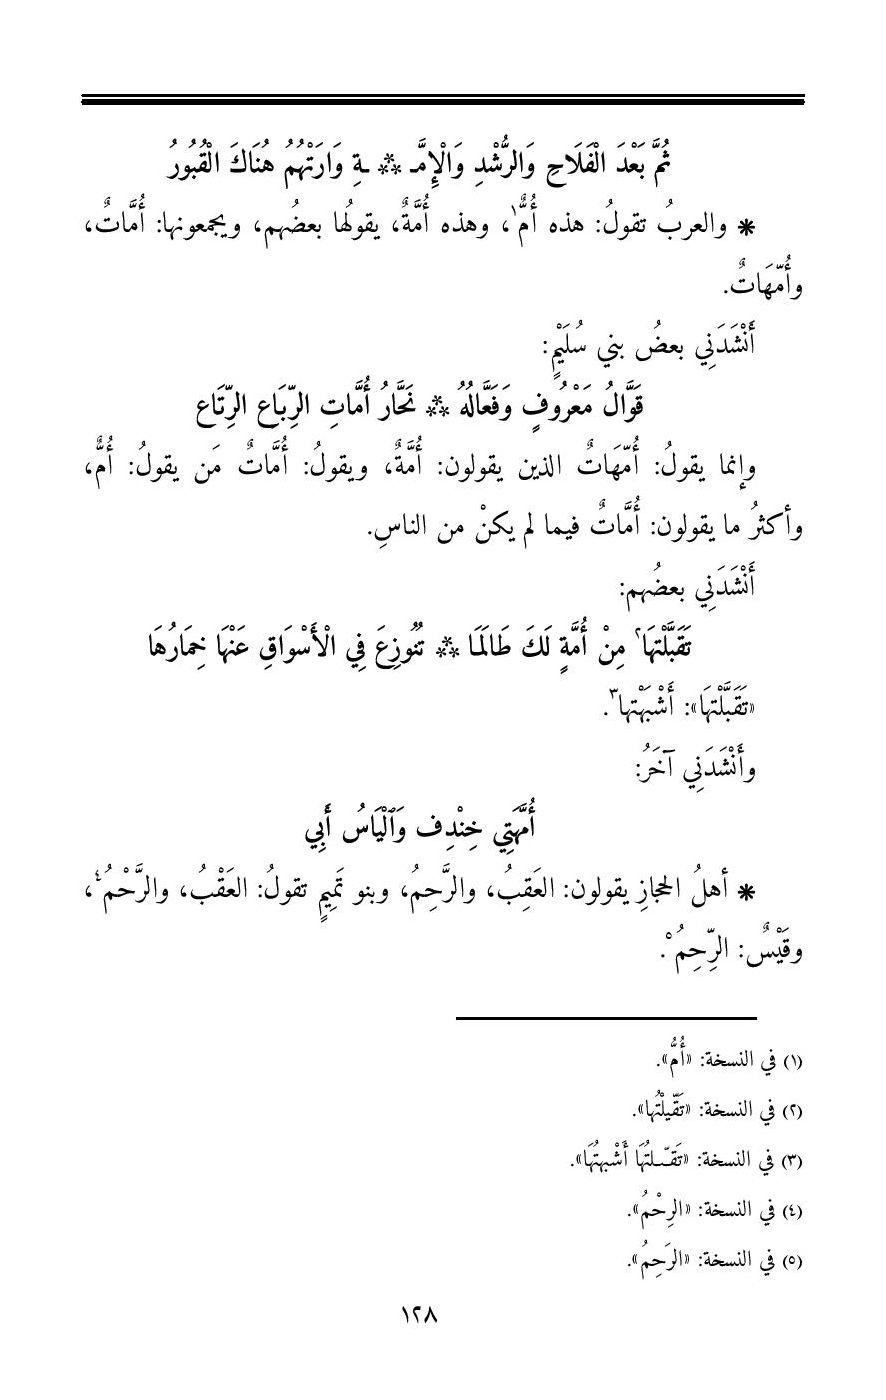 ثُمَّ بَعْدَ الْفَلَاحِ وَالرُّشْدِ وَالْإِمَّـ ** ـةِ وَارَتْهُمُ هُنَاكَ الْقُبُورُ
* والعربُ تقولُ: هذه أُمٌّ١، وهذه أُمَّةٌ، يقولُها بعضُهم، ويجمعونها: أُمَّاتٌ،
وأُمَّهَاتٌ.
أَنْشَدَنِي بعضُ بني سُلَيْمٍ:
قَوَّالُ مَعْرُوفٍ وَفَعَّالُهُ ** نَحَّارُ أُمَّاتِ الرِّبَاعِ الرِّتَاعِ
وإنما يقولُ: أُمَّهَاتٌ الذين يقولون: أُمَّةٌ، ويقولُ: أُمَّاتٌ مَن يقولُ: أُمٌّ،
وأكثرُ ما يقولون: أُمَّاتٌ فيما لم يكنْ من الناسِ.
أَنْشَدَنِي بعضُهم:
تَقَبَّلْتَهَا٢ مِنْ أُمَّةٍ لَكَ طَالَمَا ** تُنُوزِعَ فِي الْأَسْوَاقِ عَنْهَا خِمَارُهَا
«تَقَبَّلْتَهَا»: أَشْبَهْتها٣.
وأَنْشَدَنِي آخَرُ:
أُمَّهَتِي خِنْدِف وَٱلْيَاسُ أَبِي
* أهلُ الحجازِ يقولون: العَقِبُ، والرَّحِمُ، وبنو تَمِيمٍ تقولُ: العَقْبُ، والرَّحْمُ٤،
وقَيْسٌ: الرِّحِمُ٥.
(١) في النسخة: «أُمُّ».
(٢) في النسخة: «تَقَّيلْتُها».
(٣) في النسخة: «تَقـّـلتُهَا أَشْبهتُهَا».
(٤) في النسخة: «الرِحْمُ».
(٥) في النسخة: «الرَحِمُ».
١٢٨